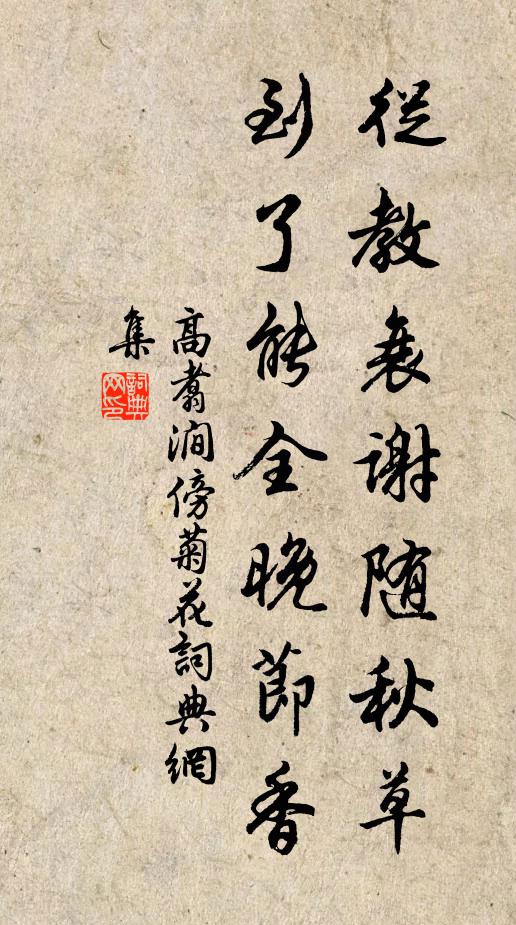 從教衰謝随秋草
到了能全晚節香
高翥澗傍菊花詞典網
集
詞典
网印